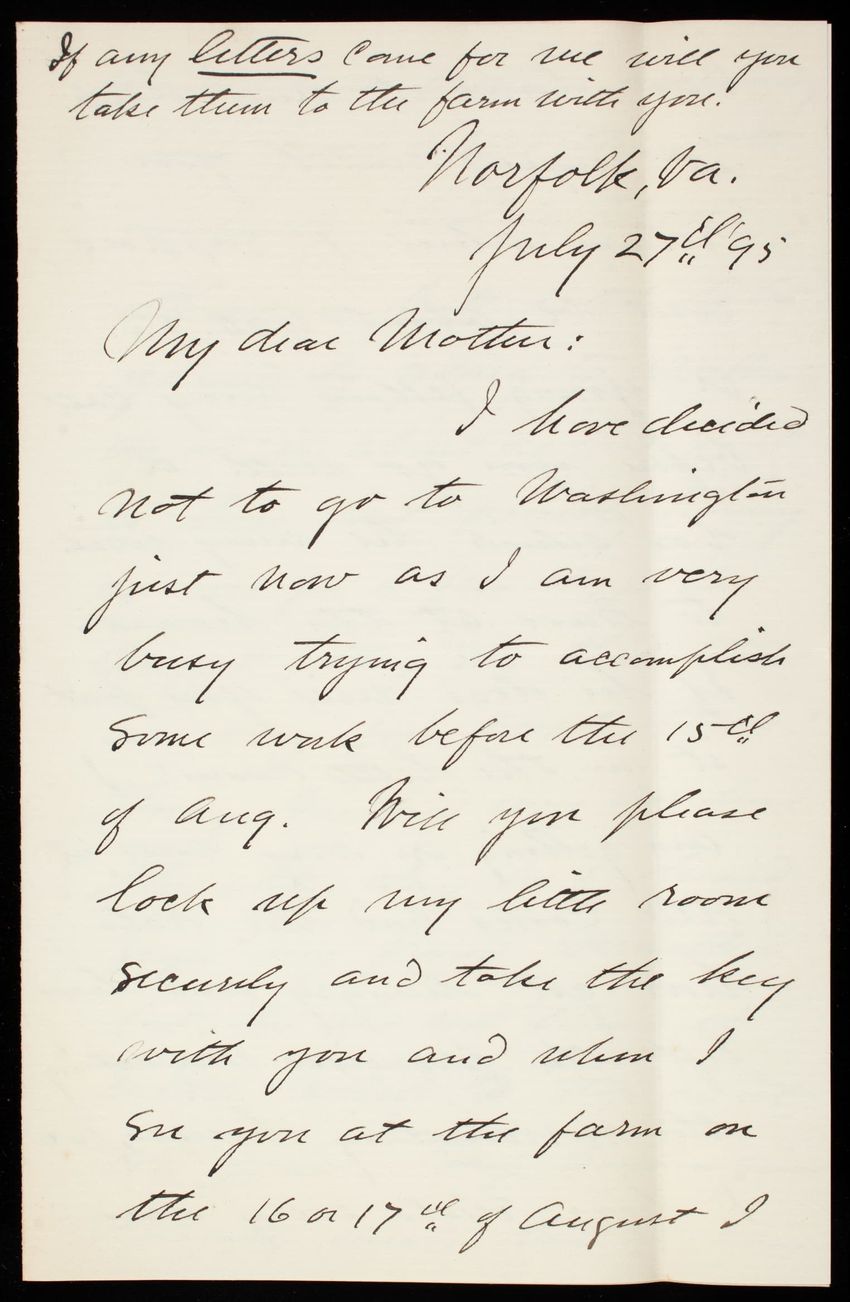 If any letters come for me will you
take them to the farm with you.
Norfolk, Va.
July 27th '95
My dear Mother:
I have decided
not to go to Washington
just now as I am very
busy trying to accomplish
some work before the 15th
of Aug. Will you please
lock up my little room
securely and take the key
with you and when I
see you at the farm on
the 16 or 17th of August I